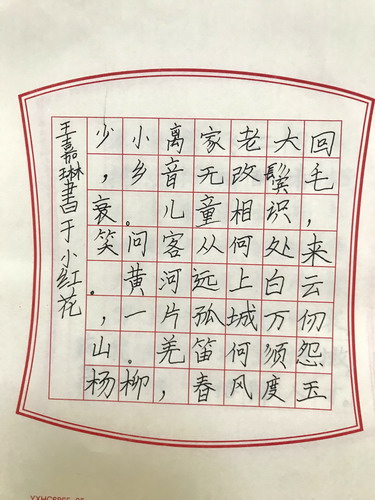 少小离家老大回
，乡音无改鬓毛
衰。儿童相识，
笑问客从何处来
。黄河远上白云
，一片孤城万仞
山。羌笛何须怨
杨柳，春风度玉
王嘉琳書于小红花